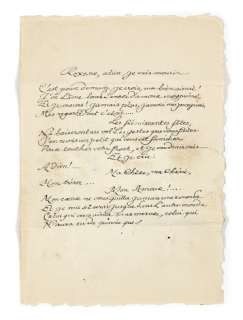 Roxane, adieu, je vais mourir
je crois, ma bien aimée!
J'ai l'âme lourde encor d'amour inexprimée
Et je meurs! jamais plus, jamais mes yeux grisés
Mes regards dont c'était....
Les frémissantes fêtes,
Ne baiseront au vol les gestes que vous faites
J'en revois un petit qui vous est familier
Pour toucher votre front, et je voudrais crier
Et je crie
Adieu!
Ma chère, ma chérie,
Mon trésor....
Mon Amour!...
Mon cœur ne vous quitta jamais une seconde
Et je suis et serai jusque dans l'autre monde
Celui qui vous aima sans mesure, celui qui